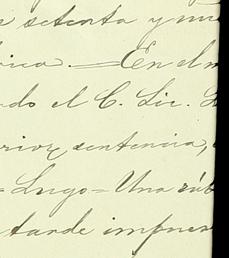 setenta y nu
rica.—En el m
ndo el C. Lic. L
rior sentencia,
=Lugo=Una rúb
tarde impues